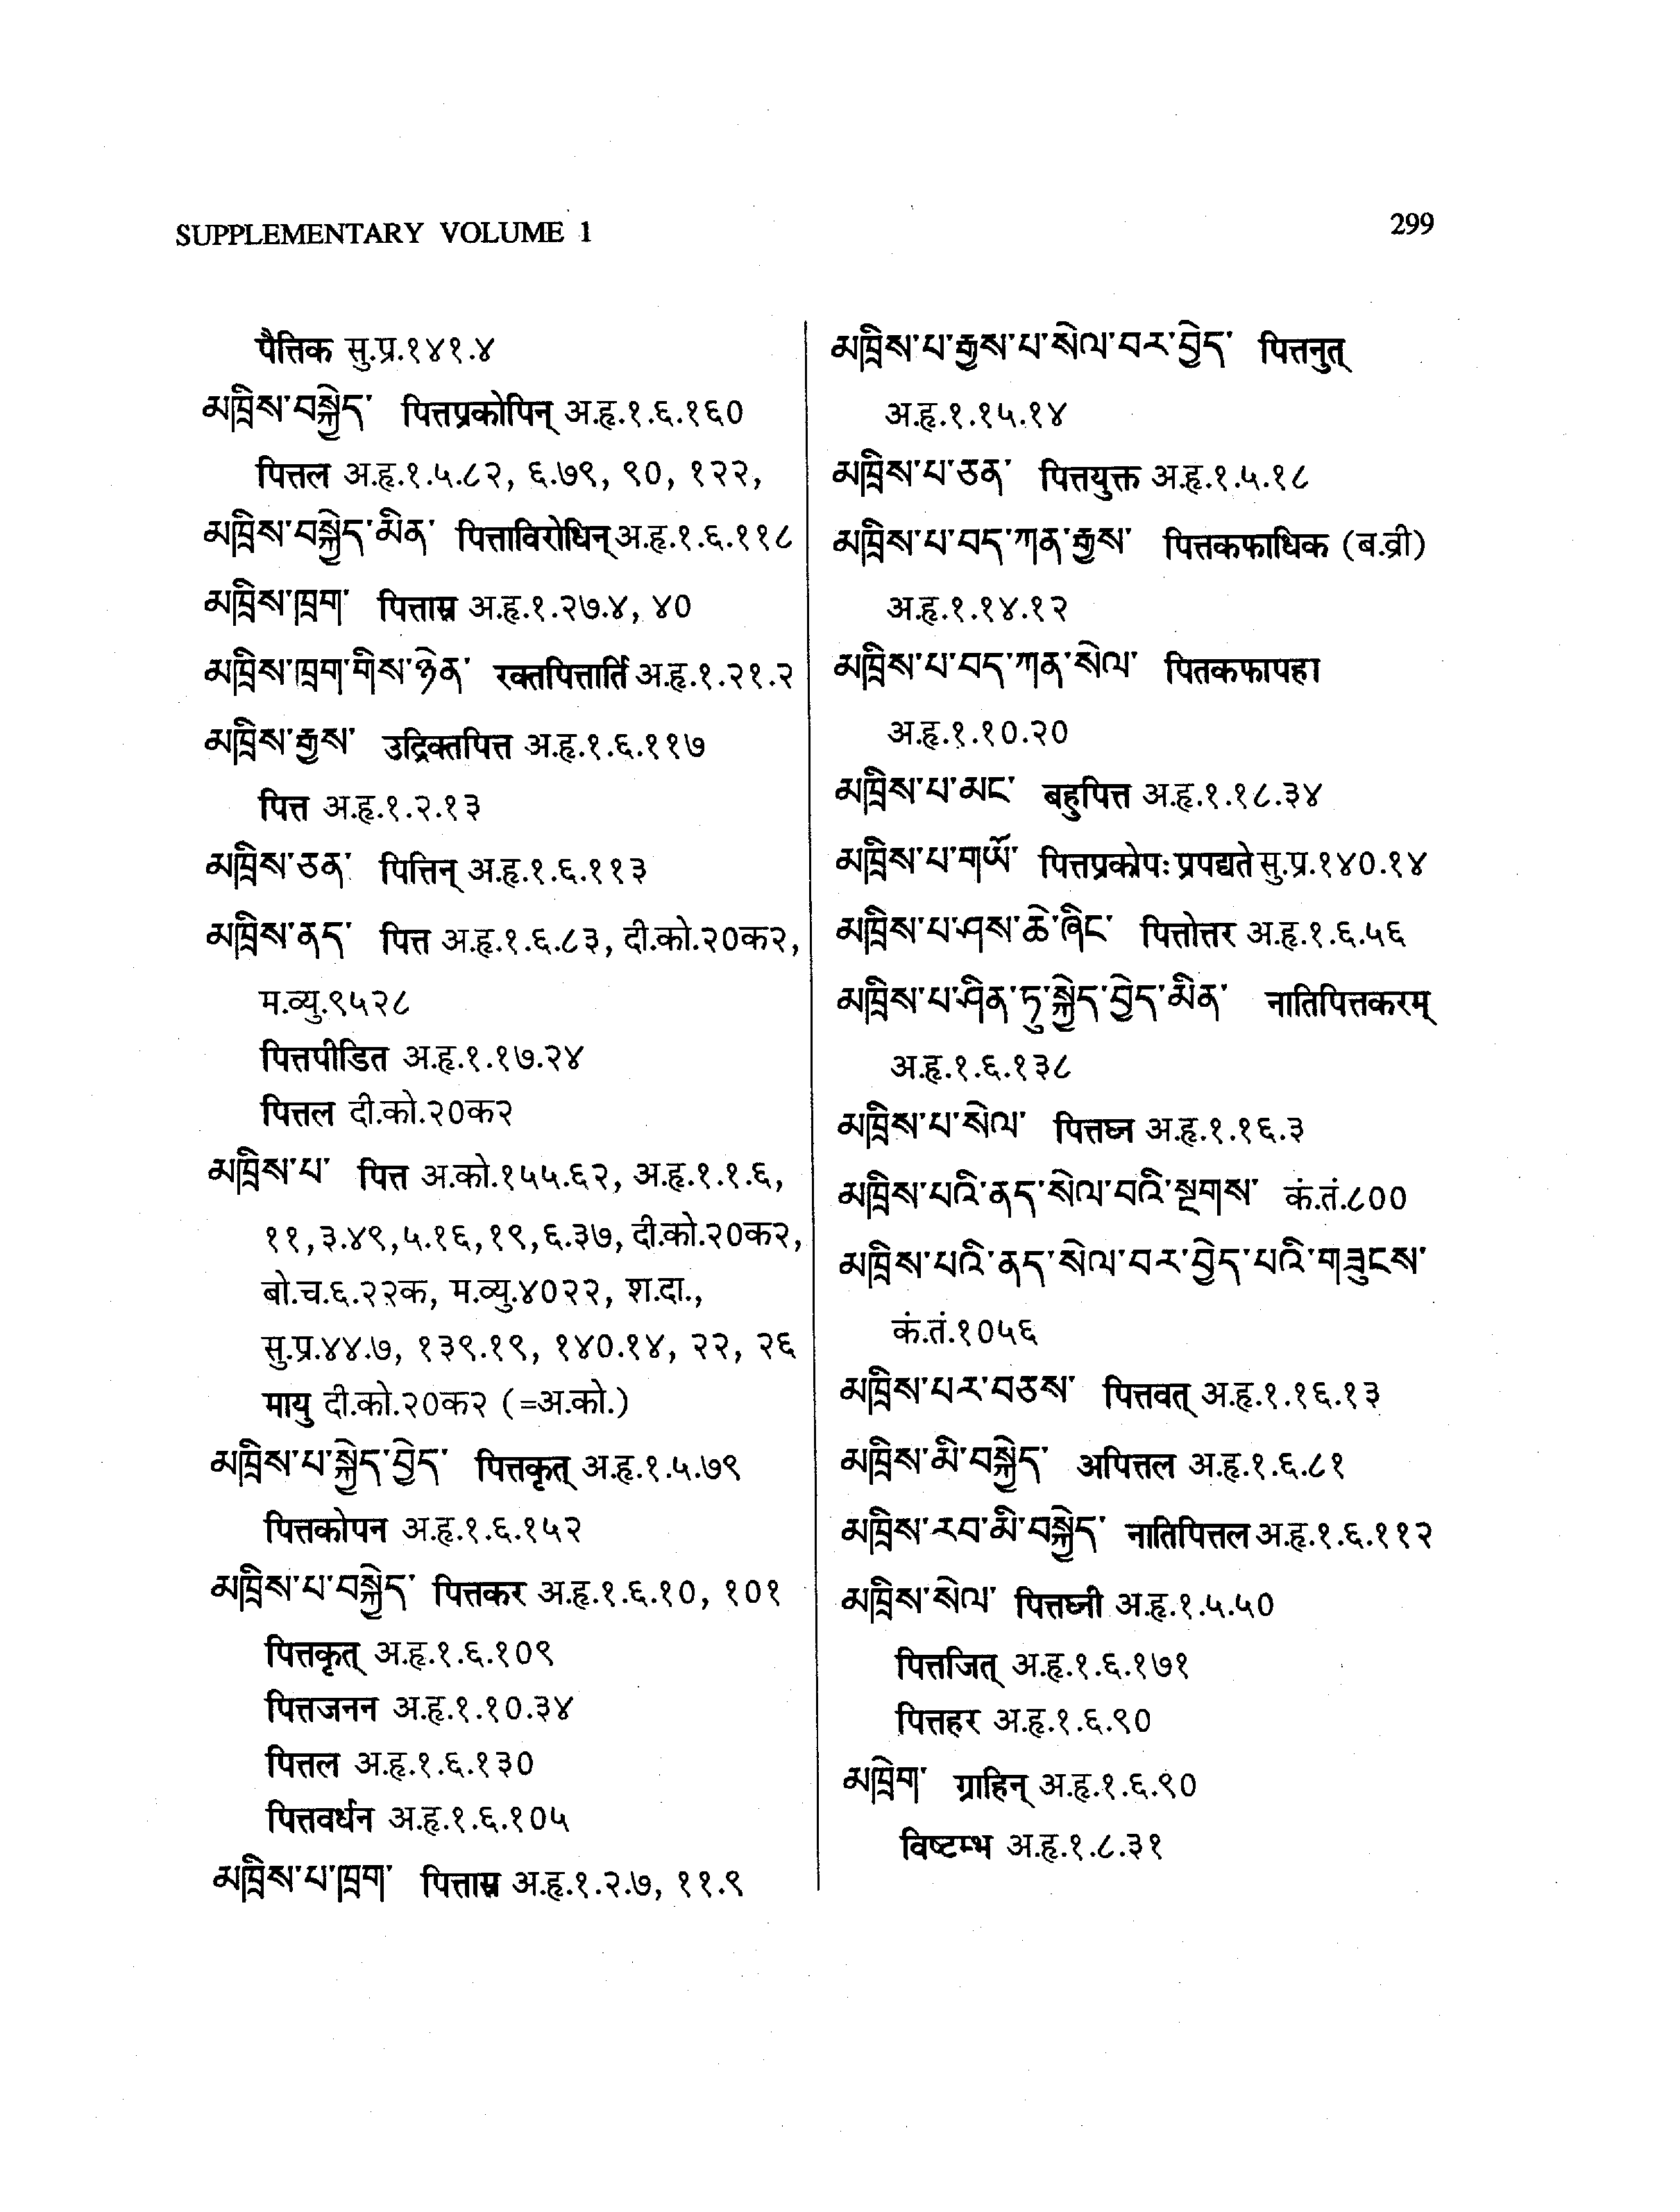 SUPPLEMENTARY VOLUME 1
299
पैत्तिक सु.प्र.१४१.४
མཁྲིས་བསྐྱེད་ पित्तप्रकोपिन् अ.हृ.१.६.१६०
पित्तल अ.हृ.१.५.८२, ६.७९, ९०, १२२,
མཁྲིས་བསྐྱེད་མིན་ पित्ताविरोधिन् अ.हृ.१.६.११८
མཁྲིས་ཁྲག་ पित्तास्र अ.हृ.१.२७.४, ४०
མཁྲིས་ཁྲག་གིས་ཉེན་ रक्तपित्तार्ति अ.हृ.१.२१.२
མཁྲིས་རྒྱས་ उद्रिक्तपित्त अ.हृ.१.६.११७
पित्त अ.हृ.१.२.१३
མཁྲིས་ཅན་ पित्तिन् अ.हृ.१.६.११३
མཁྲིས་ནད་ पित्त अ.हृ.१.६.८३, दी.को.२०क२,
म.व्यु.९५२८
पित्तपीडित अ.हृ.१.१७.२४
पित्तल दी.को.२०क२
མཁྲིས་པ་ पित्त अ.को.१५५.६२, अ.हृ.१.१.६,
११,३.४९,५.१६,१९,६.३७, दी.को.२०क२,
बो.च.६.२२क, म.व्यु.४०२२, श.दा.,
सु.प्र.४४.७, १३९.१९, १४०.१४, २२, २६
मायु दी.को.२०क२ (=अ.को.)
མཁྲིས་པ་སྐྱེད་བྱེད་ पित्तकृत् अ.हृ.१.५.७९
पित्तकोपन अ.हृ.१.६.१५२
མཁྲིས་པ་བསྐྱེད་ पित्तकर अ.हृ.१.६.१०, १०१
पित्तकृत् अ.हृ.१.६.१०९
पित्तजनन अ.हृ.१.१०.३४
पित्तल अ.हृ.१.६.१३०
पित्तवर्धन अ.हृ.१.६.१०५
མཁྲིས་པ་ཁྲག་ पित्तास्र अ.हृ.१.२.७, ११.९
མཁྲིས་པ་རྒྱས་པ་སེལ་བར་བྱེད་ पित्तनुत्
अ.हृ.१.१५.१४
མཁྲིས་པ་ཅན་ पित्तयुक्त अ.हृ.१.५.१८
མཁྲིས་པ་བད་ཀན་རྒྱས་ पित्तकफाधिक (ब.व्री)
अ.हृ.१.१४.१२
མཁྲིས་པ་བད་ཀན་སེལ་ पितकफापहा
अ.हृ.१.१०.२०
མཁྲིས་པ་མང་ बहुपित्त अ.हृ.१.१८.३४
མཁྲིས་པ་གཡོ་ पित्तप्रकोपः प्रपद्यते सु.प्र.१४०.१४
མཁྲིས་པ་ཤས་ཆེ་ཞིང་ पित्तोत्तर अ.हृ.१.६.५६
མཁྲིས་པ་ཤིན་ཏུ་སྐྱེད་བྱེད་མིན་ नातिपित्तकरम्
अ.हृ.१.६.१३८
མཁྲིས་པ་སེལ་ पित्तघ्न अ.हृ.१.१६.३
མཁྲིས་པའི་ནད་སེལ་བའི་སྔགས་ कं.तं.८००
མཁྲིས་པའི་ནད་སེལ་བར་བྱེད་པའི་གཟུངས་
कं.तं.१०५६
མཁྲིས་པར་བཅས་ पित्तवत् अ.हृ.१.१६.१३
མཁྲིས་མི་བསྐྱེད་ अपित्तल अ.हृ.१.६.८१
མཁྲིས་རབ་མི་བསྐྱེད་ नातिपित्तल अ.हृ.१.६.११२
མཁྲིས་སེལ་ पित्तघ्नी अ.हृ.१.५.५०
पित्तजित् अ.हृ.१.६.१७१
पित्तहर अ.हृ.१.६.९०
མཁྲེག་ ग्राहिन् अ.हृ.१.६.९०
विष्टम्भ अ.हृ.१.८.३१